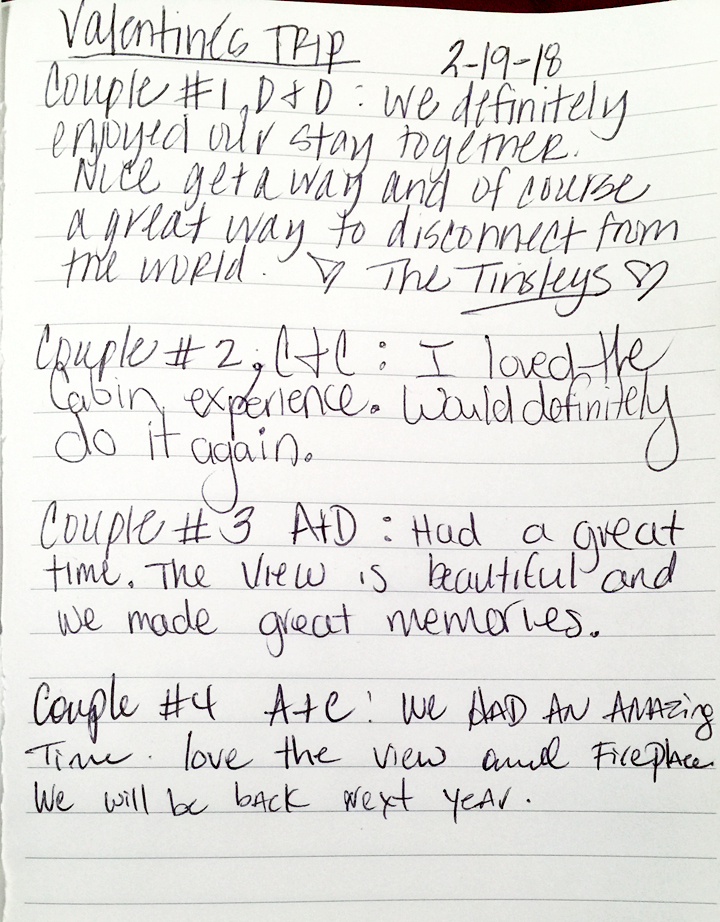 Valentines TRIP
2-19-18
Couple #1, D+D : We definitely
enjoyed our stay together.
Nice getaway and of course
a great way to disconnect from
the world. ♡ The Tinsleys ♡
Couple #2, C+C : I loved the
Cabin experience. Would definitely
do it again.
Couple #3 A+D : Had a great
time. The view is beautiful and
we made great memories.
Couple #4 A+C : We HAD AN AMAZing
Time. love the view and Fireplace
We will be back next year.